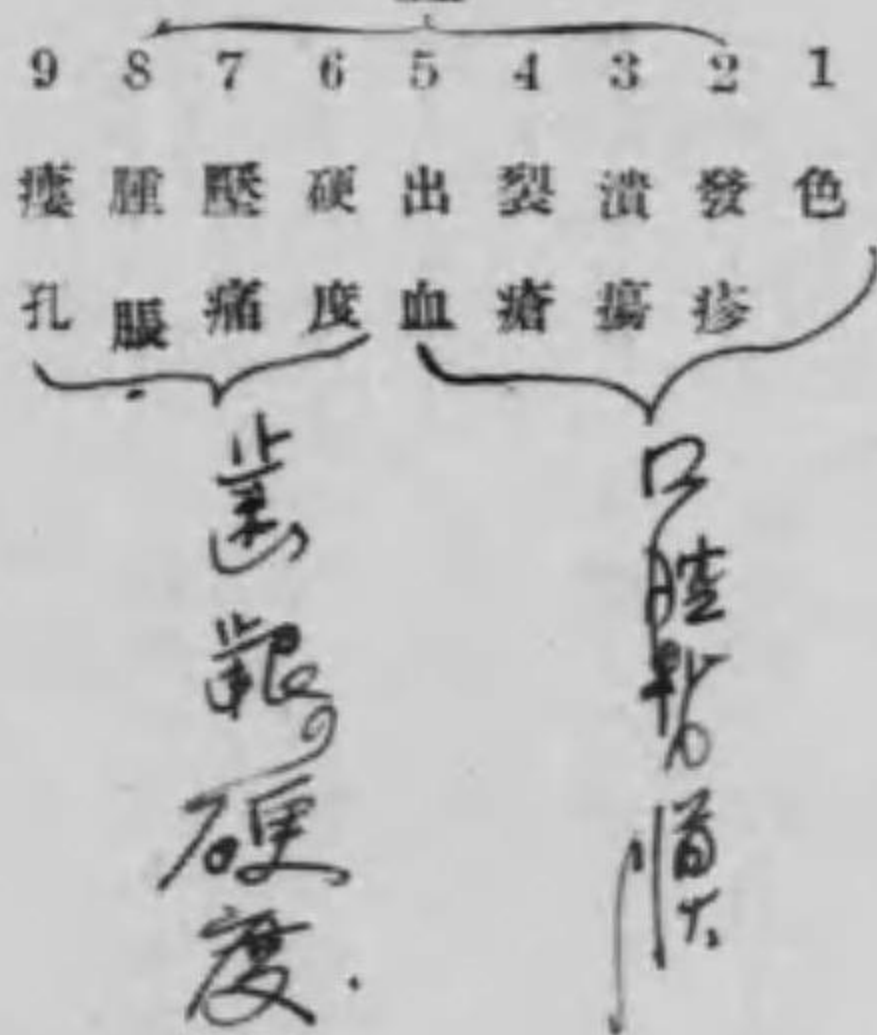 1 色
2 發疹
3 潰瘍
4 裂瘡
5 出血
6 硬度
7 壓痛
8 腫脹
9 瘻孔
口腔粘膜
歯齦の硬度.